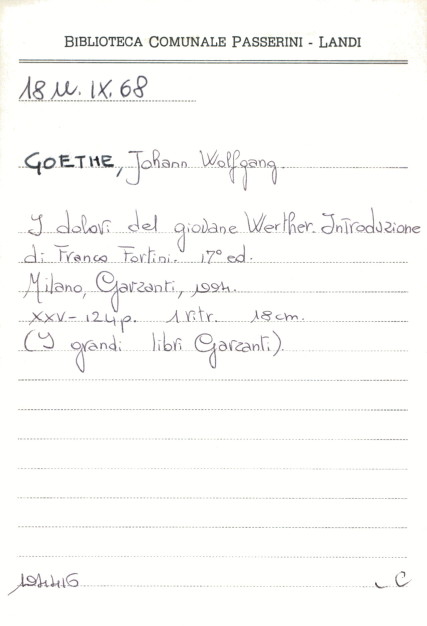 BIBLIOTECA COMUNALE PASSERINI - LANDI
18 U. IX. 68
GOETHE, Johann Wolfgang.
I dolori del giovane Werther. Introduzione
di Franco Fortini. 17° ed.
Milano, Garzanti, 1994.
XXV- 124 p. 1 ritr. 18 cm.
(I grandi libri Garzanti).
C